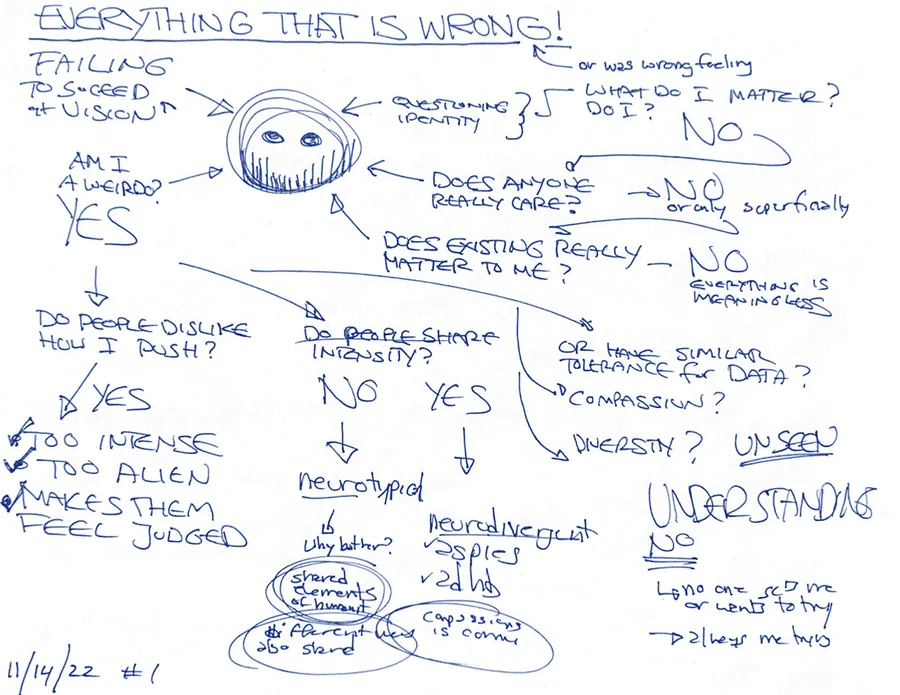 EVERYTHING THAT IS WRONG!
or was wrong feeling
FAILING
TO SUCEED
at VISION
QUESTIONING
IDENTITY
WHAT DO I MATTER?
DO I?
NO
AM I
A WEIRDO?
YES
DOES ANYONE
REALLY CARE?
NO
or only superficially
DOES EXISTING REALLY
MATTER TO ME?
NO
EVERYTHING IS
MEANINGLESS
DO PEOPLE DISLIKE
HOW I PUSH?
YES
TOO INTENSE
TOO ALIEN
MAKES THEM
FEEL JUDGED
DO PEOPLE SHARE
INTENSITY?
NO YES
neurotypical
Why bother?
neurodivergent
aspies
adhd
shared
elements
of
different
also shared
is
OR HAVE SIMILAR
TOLERANCE for DATA?
COMPASSION?
DIVERSITY? UNSEEN
UNDERSTANDING
NO
no one me
or wants to try
always me
11/14/22 #1